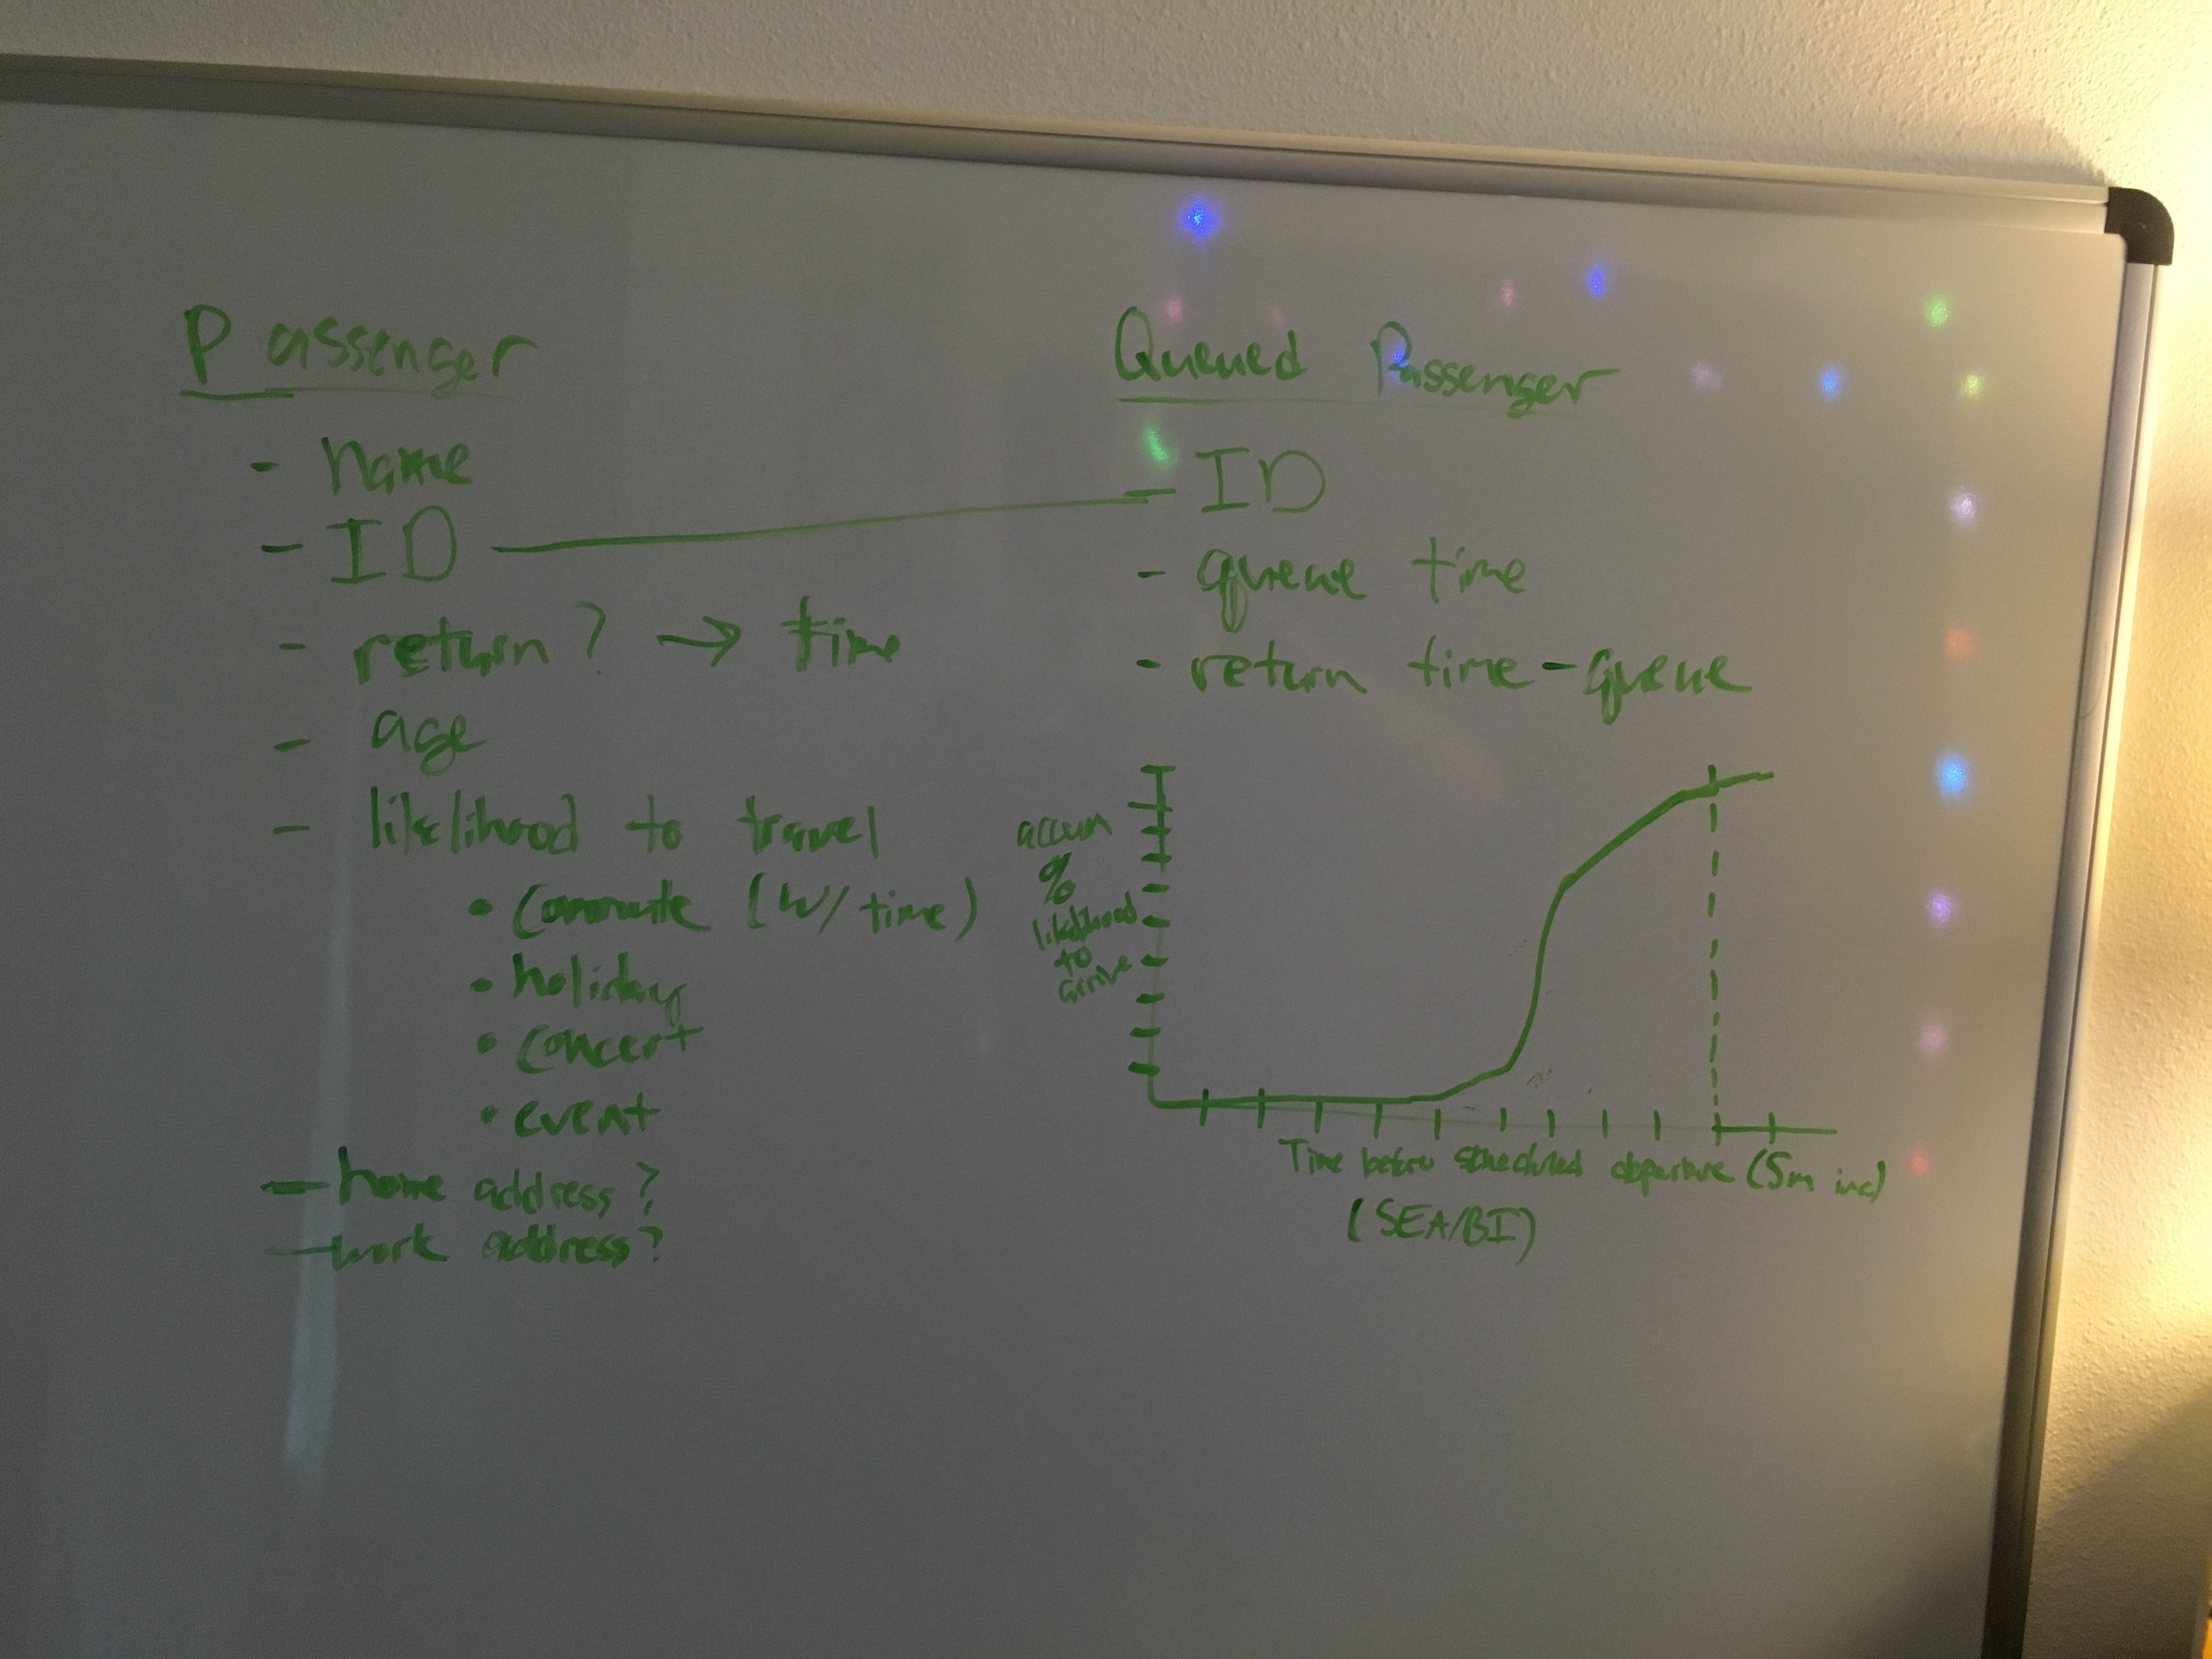 Passenger
- name
- ID
- return? → time
- age
- likelihood to travel
• commute (w/ time)
• holiday
• concert
• event
- home address?
- work address?
Queued Passenger
- ID
- queue time
- return time - queue
accum
%
likelihood
to
arrive
Time before scheduled departure (5m inc)
(SEA/BI)